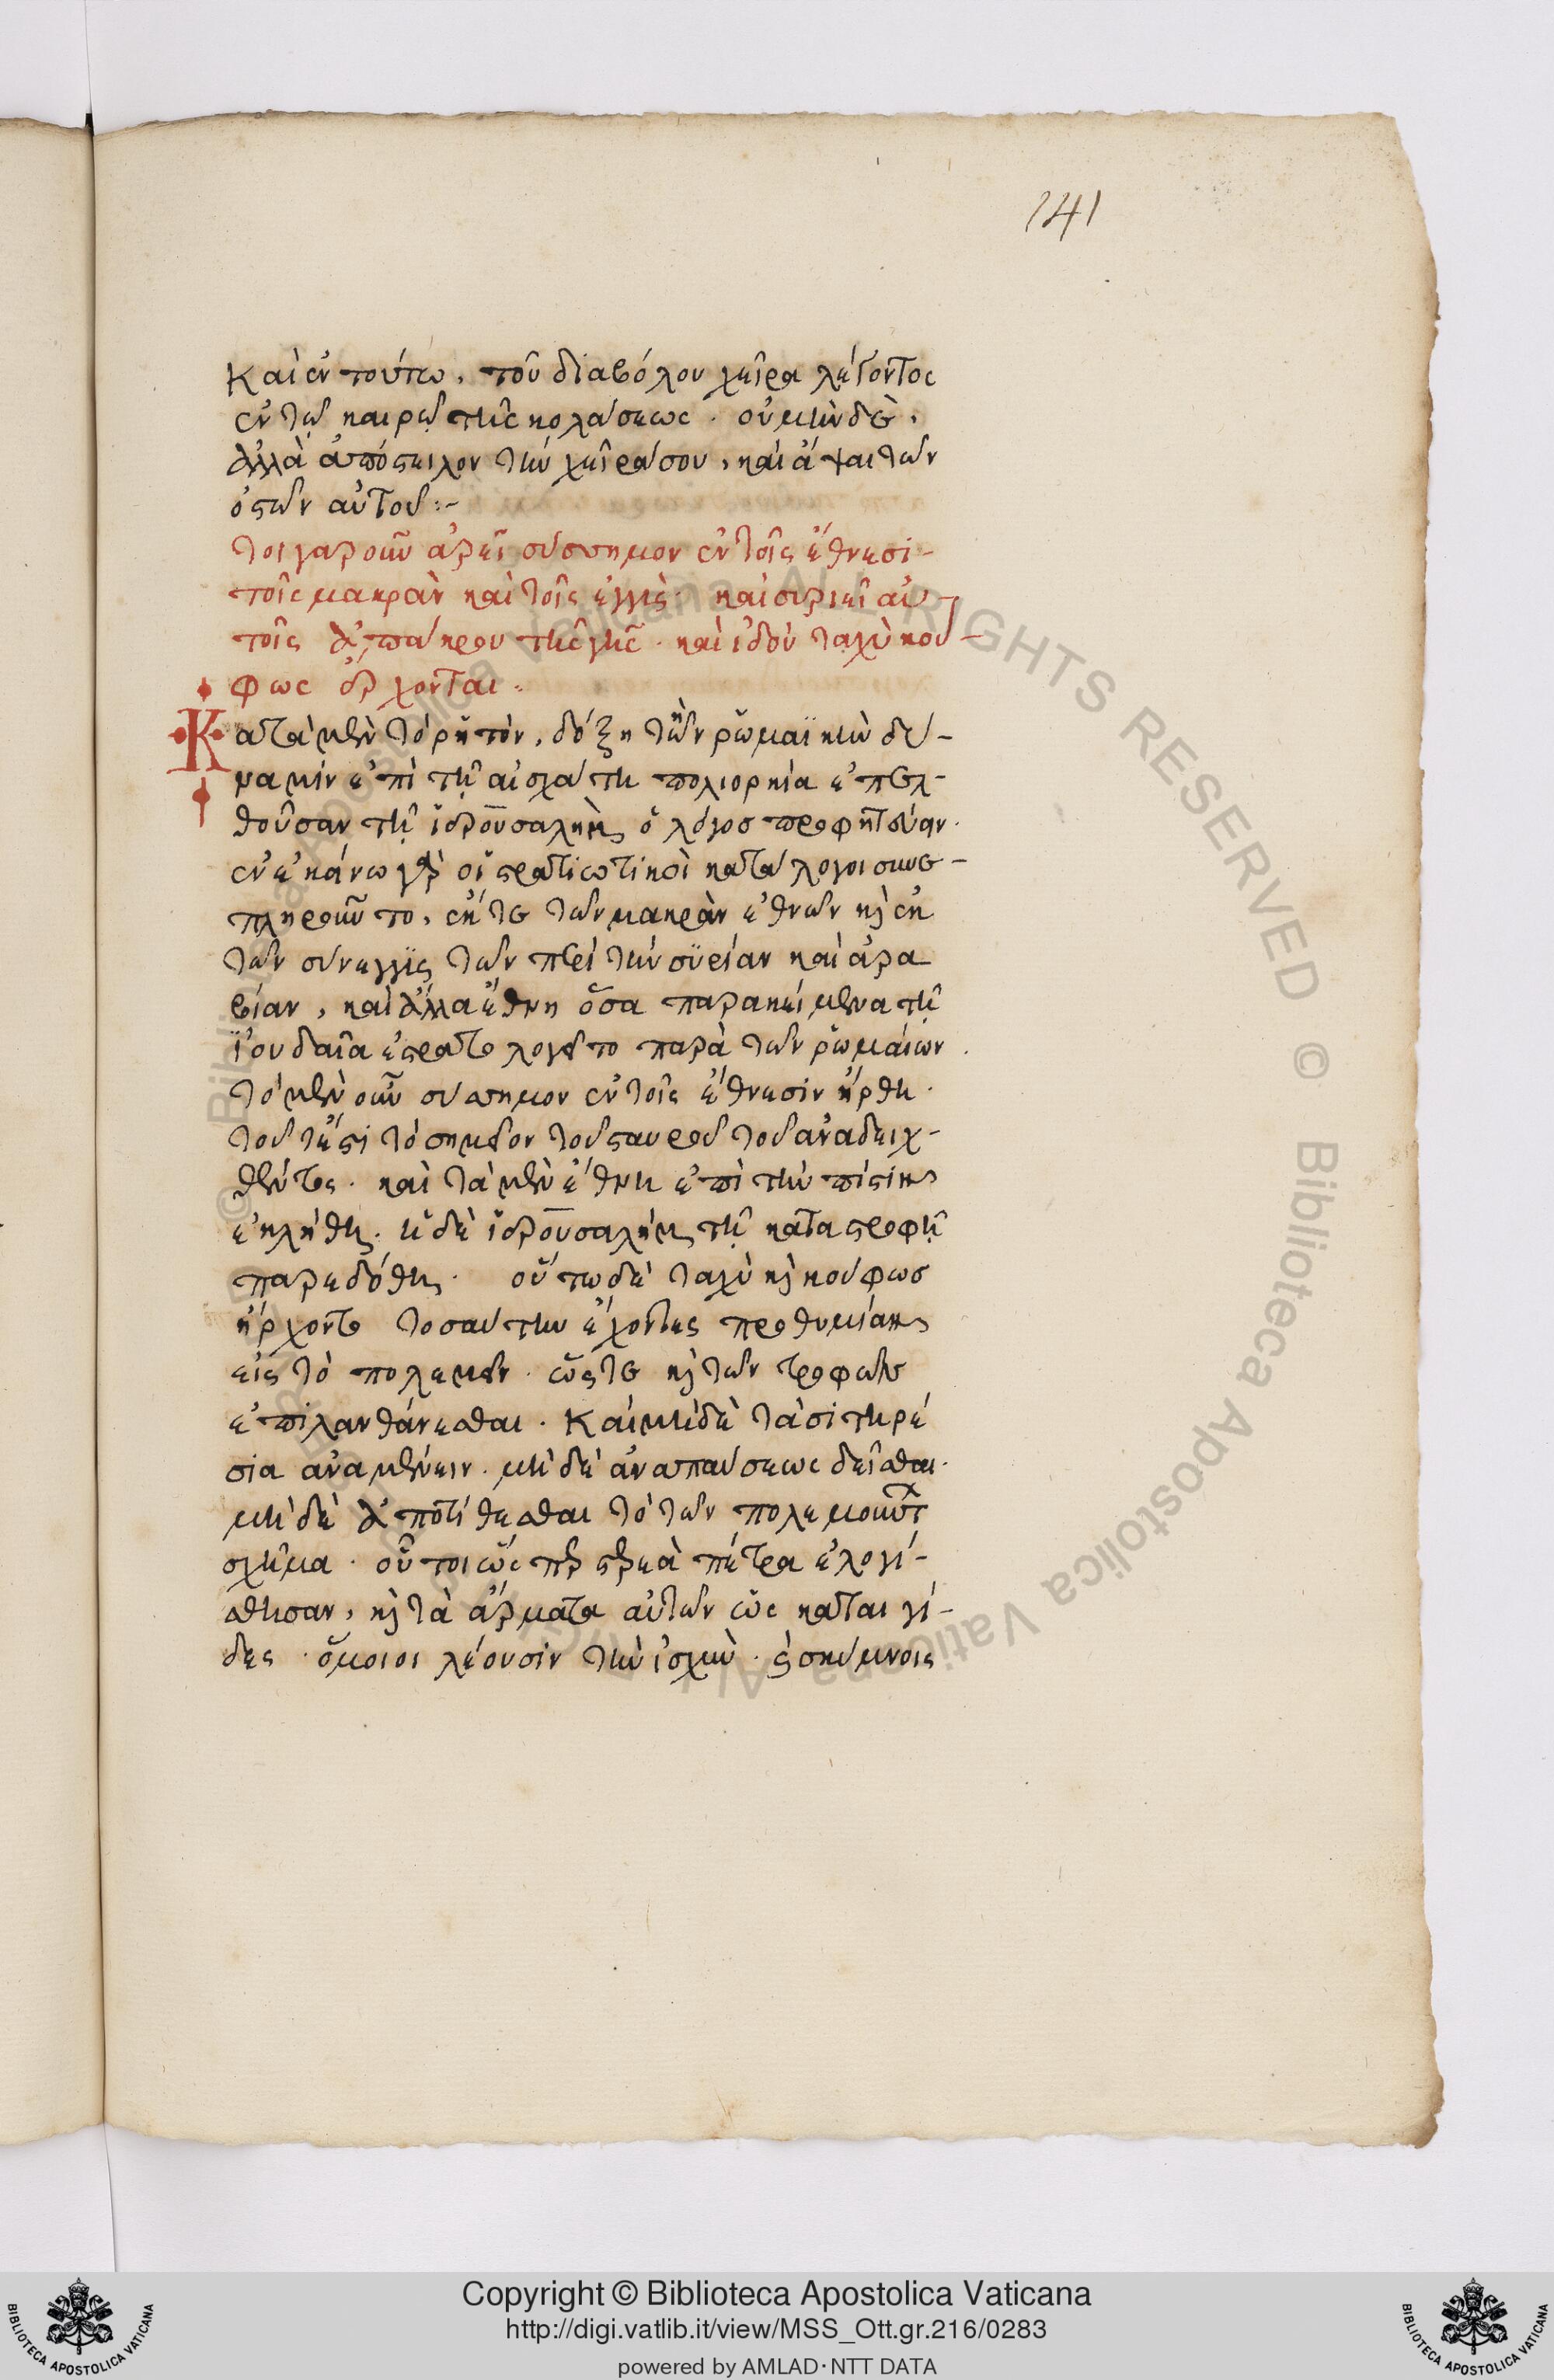 141
Καὶ ἐν τούτω, τοῦ διαβόλου χεῖρα λέγοντος
ἐν τῷ καιρῷ τῆς κολάσεως. οὐ μὴν δὲ,
ἀλλὰ ἀπόστειλον τὴν χεῖρά σου, καὶ ἅψαι τῶν
ὀστῶν αὐτοῦ:-
τοιγαροῦν ἀρεῖ σύσσημον ἐν τοῖς ἔθνεσι-
τοῖς μακρὰν καὶ τοῖς ἐγγὺς. καὶ συριεῖ αὐ-
τοῖς ἀπ' ἄκρου τῆς γῆς. καὶ ἰδοὺ ταχὺ κού-
φως ἔρχονται.
Κατὰ μὲν τὸ ῥητὸν, δόξη τὴν ῥωμαϊκὴν δύ-
ναμιν ἐπὶ τῇ αἰσχάτη πολιορκία ἐπελ-
θοῦσαν τῇ ἱερουσαλὴμ ὁ λόγος προφητεύειν.
ἐν ἐκείνω γὰρ οἱ στρατιωτικοὶ κατάλογοι συνε-
πληροῦντο, ἔκ τε τῶν μακρὰν ἐθνῶν κὶ ἐκ
τῶν σύνεγγϊς τῶν περὶ τὴν συρίαν καὶ ἀρα-
βίαν, καὶ ἄλλα ἔθνη ὅσα παρακείμενα τῇ
ϊουδαῖα ἐστρατολογεῖτο παρὰ τῶν ῥωμαίων.
τὸ μὲν οὖν σύσσημον ἐν τοῖς ἔθνεσιν ἤρθη.
τουτέστι τὸ σημεῖον τοῦ σταυροῦ τοῦ ἀναδειχ-
θέντος. καὶ τὰ μὲν ἔθνη ἐπὶ τὴν πίστιν
ἐκλήθη. ἡ δὲ ἱερουσαλὴμ τῇ καταστροφῇ
παρεδόθη. οὕτω δὲ ταχὺ κὶ κούφως
ἤρχοντο τοσαύτην ἔχοντες προθυμίαν
εἰς τὸ πολεμεῖν. ὥστε κὶ τῶν τροφῶν
ἐπιλανθάνεσθαι. Καὶ μὴ δὲ τὰ σιτηρέ
σια ἀναμένειν. μὴ δὲ ἀναπαύσεως δεῖσθαι.
μὴ δὲ ἀποτίθεσθαι τὸ τῶν πολεμούντ
σχῆμα. οὗτοι ὡς περ στερεὰ πέτρα ἐλογί-
σθησαν, κὶ τὰ ἅρματα αὐτῶν ὡς καταιγί-
δες. ὅμοιοι λέουσιν τὴν ἰσχὺν. ἢ σκύμνοις
Copyright © Biblioteca Apostolica Vaticana
http://digi.vatlib.it/view/MSS_Ott.gr.216/0283
powered by AMLAD·NTT DATA